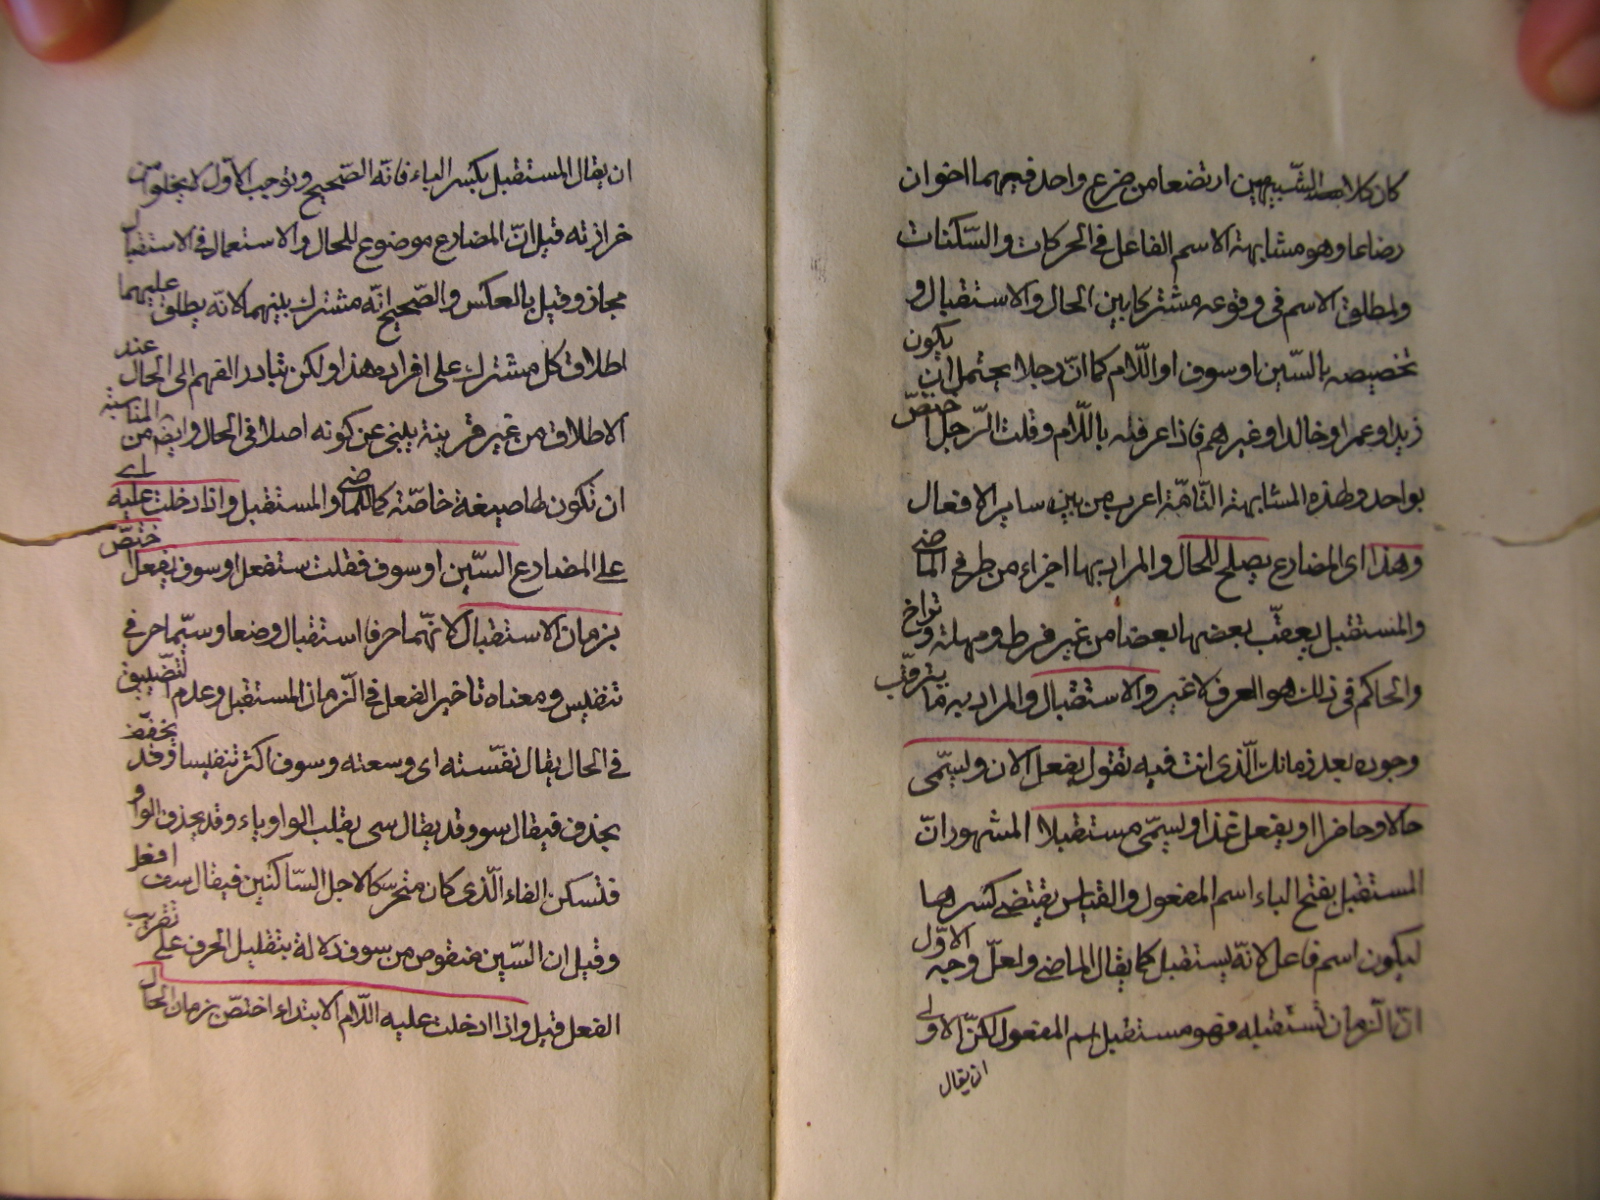 كان كلا الشبيهين ارتضعا من ضرع واحد فهما اخوان
رضاعا وهو مشابهته الاسم الفاعل في الحركات والسّكنات
ولمطلق الاسم في وقوعه مشتركا بين الحال والاستقبال و
تخصيصه بالسّين او سوف او اللّام كما انّ رجلا يحتمل ان يكون
زيدا وعمرا وخالدا وغيرهم فاذا عرفته باللّام وقلت الرّجل اختصّ
بواحد ولهذه المشابهة التّامّة اعرب من بين ساير الافعال
وهذا اى المضارع يصلح للحال والمراد بها اجزاء من طرفي الماضى
والمستقبل يعقّب بعضها بعضا من غير فرط ومهلة وتراخ
والحاكم في ذلك هو العرف لا غير والاستقبال والمراد به ما يترقّب
وجوده بعد زمانك الّذى انت فيه تقول يفعل الان ويسمّى
حالا وحاضرا او يفعل غذا ويسمّى مستقبلا المشهور انّ
المستقبل بفتح الباء اسم المفعول والقياس يقتضى كسرها
ليكون اسم فاعل لانّه يستقبل كما يقال الماضى ولعلّ وجه الاوّل
انّ الزمان تستقبله فهو مستقبل اسم المفعول لكنّ الاولى
ان يقال
ان يقال المستقبل بكسر الباء فانّه الصّحيح وتوجيه الاوّل لا يخلو من
حزازته قيل انّ المضارع موضوع للحال والاستعمال في الاستقبال
مجاز وقيل بالعكس والصّحيح انّه مشترك بينهما لانّه يطلق عليهما
اطلاق كل مشترك على افراده هذا ولكن تبادر الفهم الى الحال عند
الاطلاق من غير قرينة ينبئ عن كونه اصلا في الحال وايضا من المناسبة
ان تكون لها صيغة خاصّة كالماضى والمستقبل واذا دخلت عليه اى
على المضارع السّين او سوف فقلت ستفعل او سوف يفعل اختصّ
بزمان الاستقبال لانّهما حرفا استقبال وضعا وسمّيا حرفي
تنفيس ومعناه تاخير الفعل في الزّمان المستقبل وعدم التّضييق
في الحال يقال نفّسته اى وسعته وسوف اكثر تنفيسا وقد يخفّف
بحذف فيقال سو وقد يقال سى بقلب الواو ياء وقد يحذف الواو
فتسكن الفاء الّذى كان متحرّكا لاجل السّاكنين فيقال سف افعل
وقيل ان السّين منقوص من سوف دلالة بتقليل الحرف على تقريب
الفعل قيل واذا ادخلت عليه اللّام الابتداء اختصّ بزمان الحال